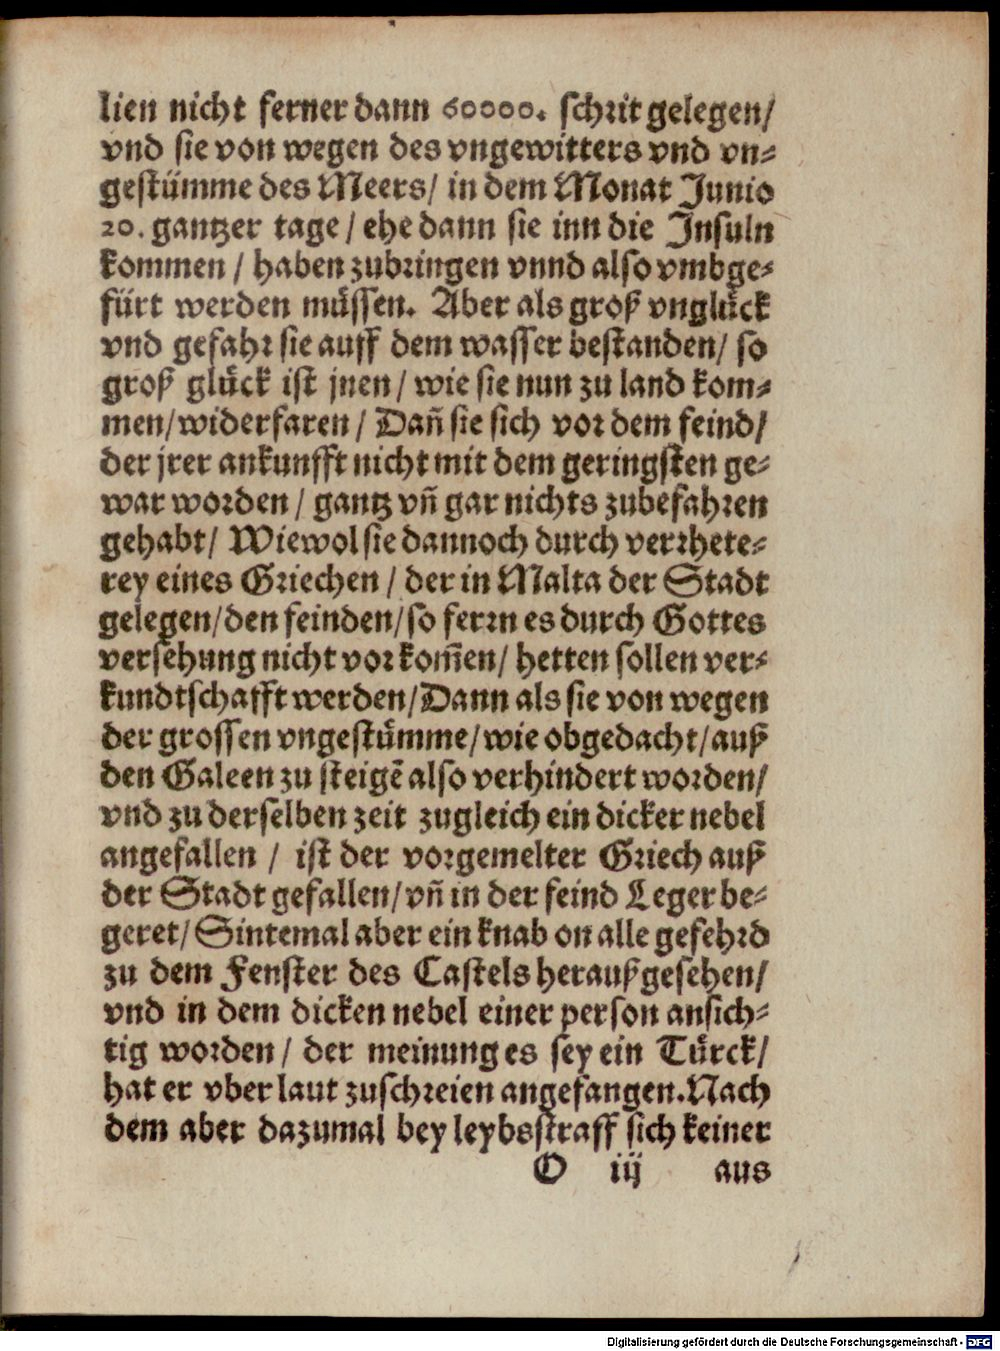 lien nicht ferner dann 60000. schrit gelegen/
vnd sie von wegen des vngewitters vnd vn-
gestümme des Meers/ in dem Monat Junio
20. gantzer tage / ehe dann sie inn die Insuln
kommen / haben zubringen vnnd also vmbge-
fürt werden müssen. Aber als groß vnglück
vnd gefahr sie auff dem wasser bestanden/ so
groß glück ist jnen / wie sie nun zu land kom-
men/widerfaren / Dañ sie sich vor dem feind/
der jrer ankunfft nicht mit dem geringsten ge-
war worden / gantz vñ gar nichts zubefahren
gehabt/ Wiewol sie dannoch durch verrhete-
rey eines Griechen / der in Malta der Stadt
gelegen/den feinden/so ferrn es durch Gottes
versehung nicht vor kom̃en/ hetten sollen ver-
kundtschafft werden/Dann als sie von wegen
der grossen vngestümme/wie obgedacht/auß
den Galeen zu steigẽ also verhindert worden/
vnd zu derselben zeit zugleich ein dicker nebel
angefallen / ist der vorgemelter Griech auß
der Stadt gefallen/vñ in der feind Leger be-
geret/ Sintemal aber ein knab on alle gefehrd
zu dem Fenster des Castels herauß gesehen/
vnd in dem dicken nebel einer person ansich-
tig worden / der meinung es sey ein Türck/
hat er vber laut zuschreien angefangen. Nach
dem aber dazumal bey leybsstraff sich keiner
O iij aus
Digitalisierung gefördert durch die Deutsche Forschungsgemeinschaft - DFG